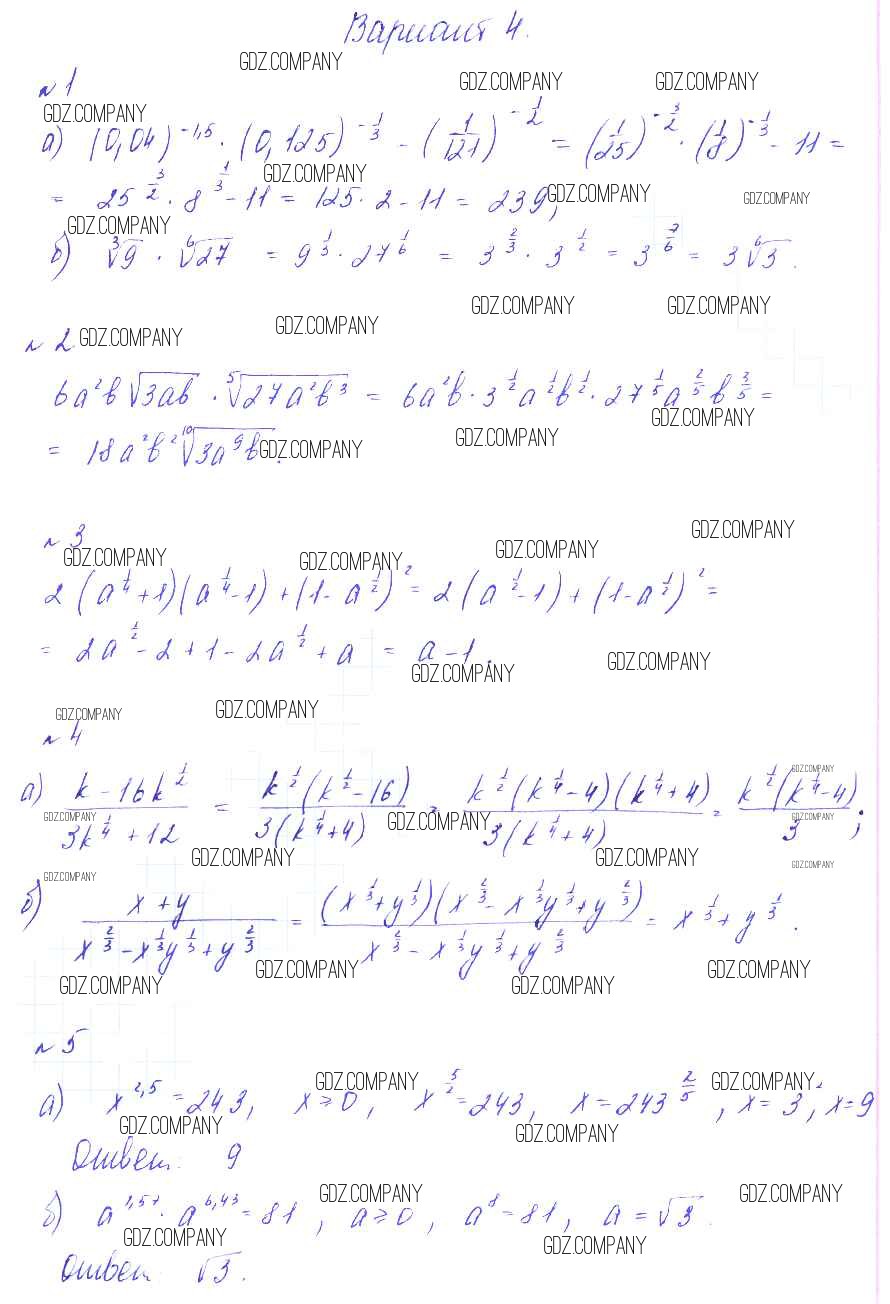 Вариант 4.
GDZ.COMPANY
№ 1
GDZ.COMPANY GDZ.COMPANY
GDZ.COMPANY
а) (0,04)^{-1,5} · (0,125)^{-1/3} - (1/121)^{-1/2} = (1/25)^{-3/2} · (1/8)^{-1/3} - 11 =
GDZ.COMPANY
= 25^{3/2} · 8^{1/3} - 11 = 125 · 2 - 11 = 239;
GDZ.COMPANY GDZ.COMPANY
GDZ.COMPANY
б) ∛9 · ⁶√27 = 9^{1/3} · 27^{1/6} = 3^{2/3} · 3^{1/2} = 3^{7/6} = 3 ⁶√3.
GDZ.COMPANY GDZ.COMPANY
GDZ.COMPANY
№ 2
GDZ.COMPANY
6a²b√3ab · ⁵√27a²b³ = 6a²b · 3^{1/2}a^{1/2}b^{1/2} · 27^{1/5}a^{2/5}b^{3/5} =
GDZ.COMPANY
= 18a²b² ¹⁰√3a⁹b.
GDZ.COMPANY GDZ.COMPANY
№ 3
GDZ.COMPANY
GDZ.COMPANY GDZ.COMPANY GDZ.COMPANY
2(a^{1/4}+1)(a^{1/4}-1) + (1-a^{1/2})² = 2(a^{1/2}-1) + (1-a^{1/2})² =
= 2a^{1/2} - 2 + 1 - 2a^{1/2} + a = a - 1.
GDZ.COMPANY GDZ.COMPANY
GDZ.COMPANY GDZ.COMPANY
№ 4
GDZ.COMPANY
а) (k - 16k^{1/2})/(3k^{1/4} + 12) = (k^{1/2}(k^{1/2} - 16))/(3(k^{1/4}+4)) = (k^{1/2}(k^{1/4}-4)(k^{1/4}+4))/(3(k^{1/4}+4)) = (k^{1/2}(k^{1/4}-4))/3;
GDZ.COMPANY GDZ.COMPANY GDZ.COMPANY
GDZ.COMPANY GDZ.COMPANY GDZ.COMPANY
GDZ.COMPANY
б) (x + y)/(x^{2/3} - x^{1/3}y^{1/3} + y^{2/3}) = ((x^{1/3}+y^{1/3})(x^{2/3} - x^{1/3}y^{1/3} + y^{2/3}))/(x^{2/3} - x^{1/3}y^{1/3} + y^{2/3}) = x^{1/3} + y^{1/3}.
GDZ.COMPANY GDZ.COMPANY
GDZ.COMPANY GDZ.COMPANY
№ 5
GDZ.COMPANY GDZ.COMPANY
а) x^{2,5} = 243, x ≥ 0, x^{5/2} = 243, x = 243^{2/5}, x = 3², x = 9
GDZ.COMPANY GDZ.COMPANY
Ответ: 9
GDZ.COMPANY GDZ.COMPANY
б) a^{1,57} · a^{6,43} = 81, a ≥ 0, a⁸ = 81, a = √3.
GDZ.COMPANY GDZ.COMPANY
Ответ: √3.